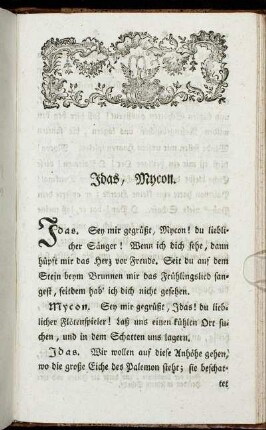 Idas, Mycon.
Idas. Sey mir gegrüßt, Mycon! du lieb-
licher Sänger! Wenn ich dich sehe, dann
hüpft mir das Herz vor Freude. Seit du auf dem
Stein beym Brunnen mir das Frühlingslied san-
gest, seitdem hab' ich dich nicht gesehen.
Mycon. Sey mir gegrüßt, Idas! du lieb-
licher Flötenspieler! laß uns einen kühlen Ort su-
chen, und in dem Schatten uns lagern.
Idas. Wir wollen auf diese Anhöhe gehen,
wo die große Eiche des Palemon steht; sie beschat-
tet